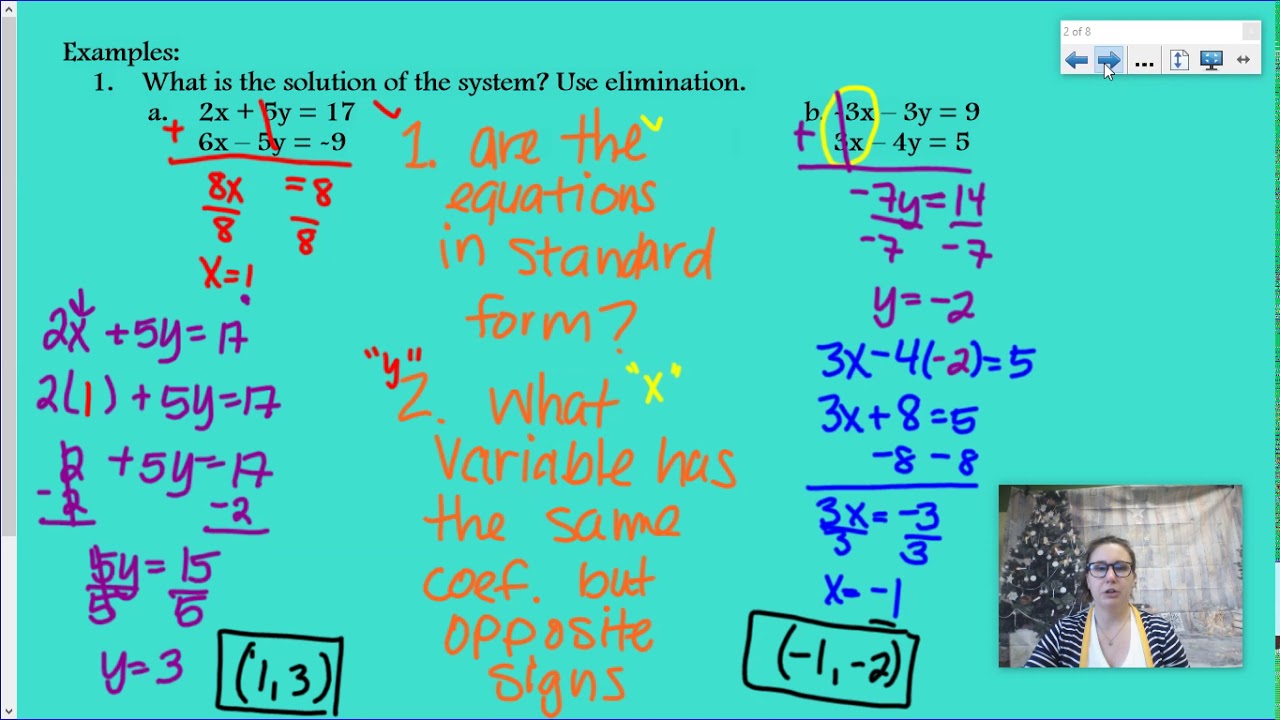 2 of 8
Examples:
1. What is the solution of the system? Use elimination.
a. 2x + 5y = 17
+ 6x – 5y = -9
8x = 8
8 8
x = 1
2x + 5y = 17
2(1) + 5y = 17
2 + 5y = 17
-2 -2
5y = 15
5 5
y = 3
(1, 3)
1. are the
equations
in standard
form?
"y" "x"
2. what
variable has
the same
coef. but
opposite
signs
b. -3x – 3y = 9
+ 3x – 4y = 5
-7y = 14
-7 -7
y = -2
3x - 4(-2) = 5
3x + 8 = 5
-8 -8
3x = -3
3 3
x = -1
(-1, -2)